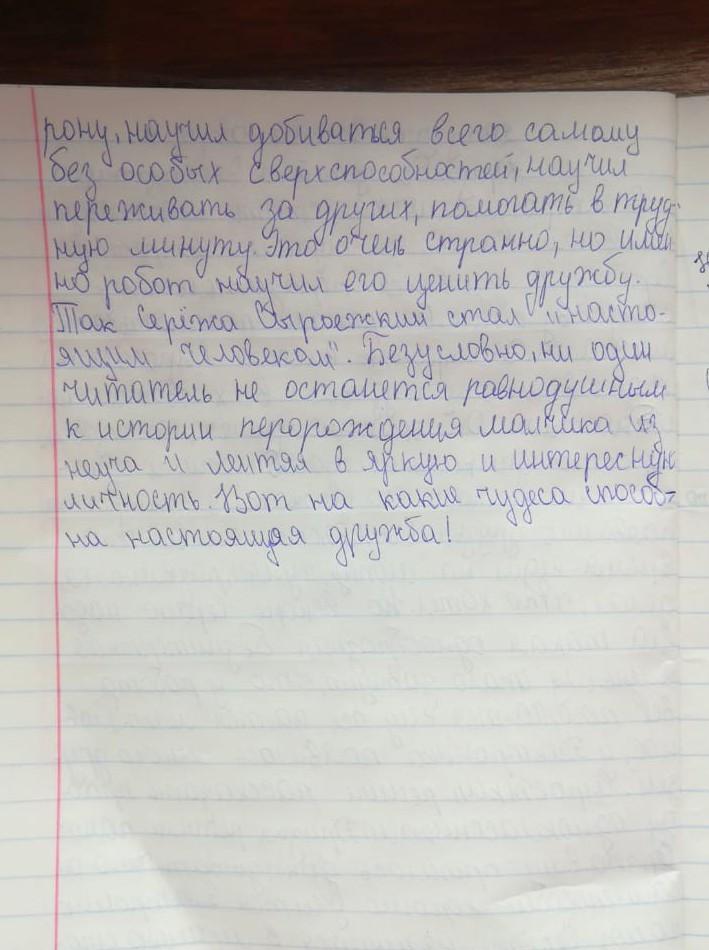 рону, научил добиваться всего самому
без особых сверхспособностей, научил
переживать за других, помогать в труд-
ную минуту. Это очень странно, но имен
но робот научил его ценить дружбу.
Так Серёжа Сыроежкин стал „насто-
ящим человеком". Безусловно, ни один
читатель не останется равнодушным
к истории перорождения мальчика из
неуча и лентяя в яркую и интересную
личность. Вот на какие чудеса способ-
на настоящая дружба!